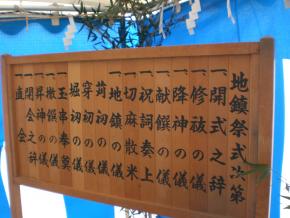 地鎮祭式次第
一、開式之辞
一、修祓の儀
一、降神の儀
一、献饌の儀
一、祝詞奏上
一、切麻散米
一、地鎮の儀
一、苅初の儀
一、穿初の儀
一、堀初の儀
一、玉串奉奠
一、撤饌の儀
一、昇神の儀
一、閉会之辞
一、直会